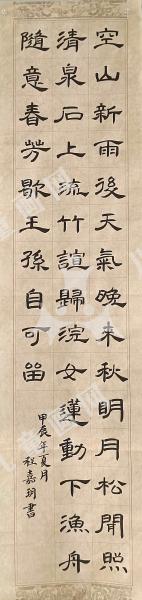 空山新雨後天氣晚来秋明月松間照
清泉石上流竹諠歸浣女蓮動下漁舟
隨意春芳歇王孫自可畱
甲辰年夏月
程嘉玥書